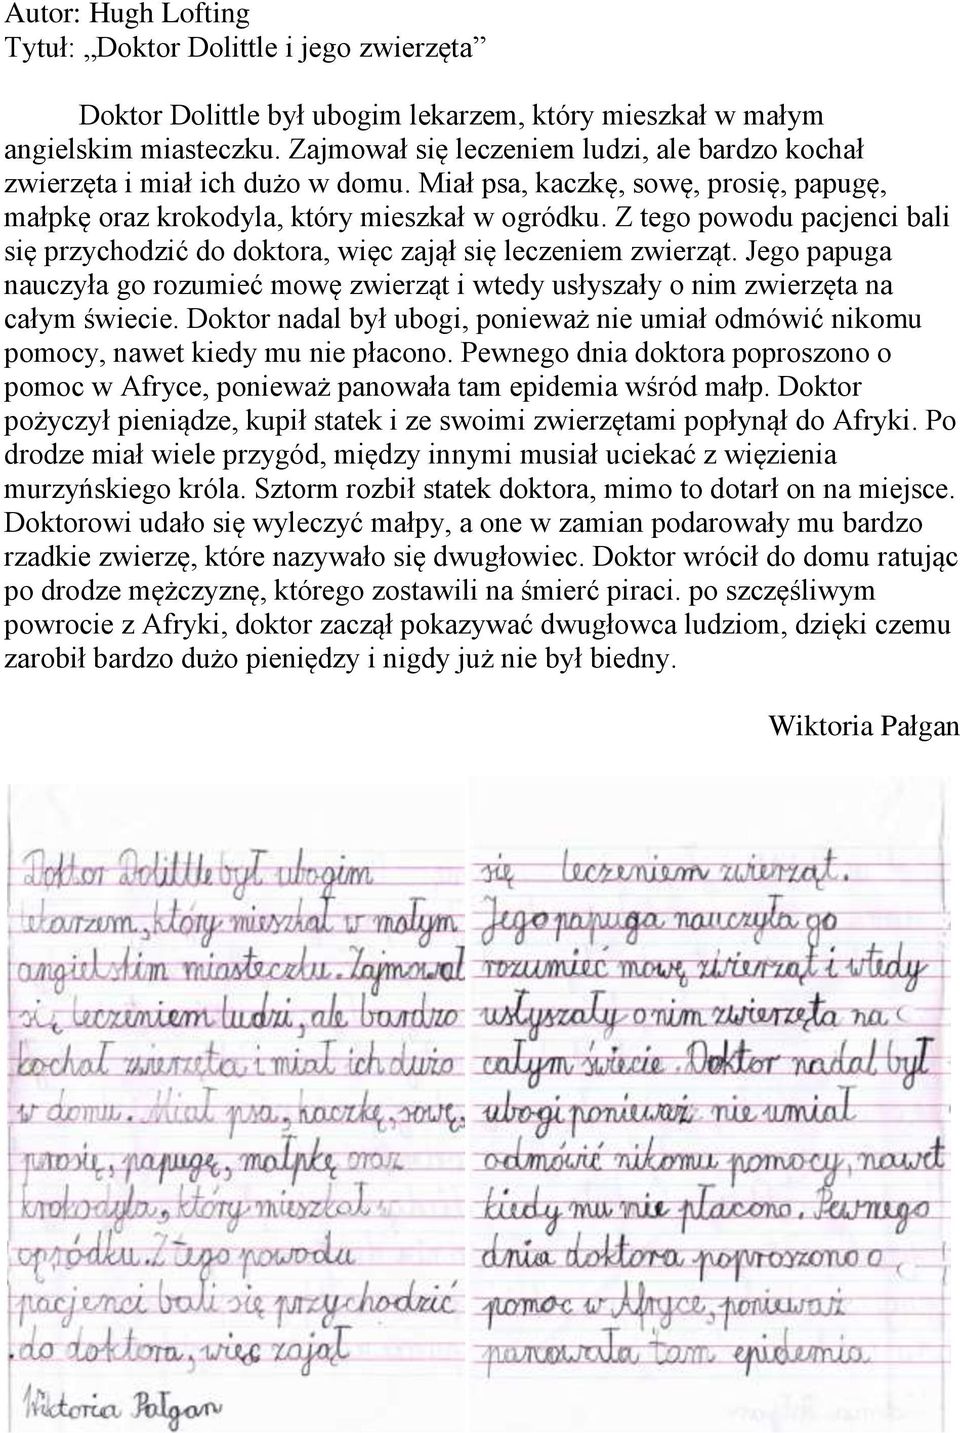 Autor: Hugh Lofting
Tytuł: „Doktor Dolittle i jego zwierzęta”
Doktor Dolittle był ubogim lekarzem, który mieszkał w małym
angielskim miasteczku. Zajmował się leczeniem ludzi, ale bardzo kochał
zwierzęta i miał ich dużo w domu. Miał psa, kaczkę, sowę, prosię, papugę,
małpkę oraz krokodyla, który mieszkał w ogródku. Z tego powodu pacjenci bali
się przychodzić do doktora, więc zajął się leczeniem zwierząt. Jego papuga
nauczyła go rozumieć mowę zwierząt i wtedy usłyszały o nim zwierzęta na
całym świecie. Doktor nadal był ubogi, ponieważ nie umiał odmówić nikomu
pomocy, nawet kiedy mu nie płacono. Pewnego dnia doktora poproszono o
pomoc w Afryce, ponieważ panowała tam epidemia wśród małp. Doktor
pożyczył pieniądze, kupił statek i ze swoimi zwierzętami popłynął do Afryki. Po
drodze miał wiele przygód, między innymi musiał uciekać z więzienia
murzyńskiego króla. Sztorm rozbił statek doktora, mimo to dotarł on na miejsce.
Doktorowi udało się wyleczyć małpy, a one w zamian podarowały mu bardzo
rzadkie zwierzę, które nazywało się dwugłowiec. Doktor wrócił do domu ratując
po drodze mężczyznę, którego zostawili na śmierć piraci. po szczęśliwym
powrocie z Afryki, doktor zaczął pokazywać dwugłowca ludziom, dzięki czemu
zarobił bardzo dużo pieniędzy i nigdy już nie był biedny.
Wiktoria Pałgan
Doktor Dolittle był ubogim
lekarzem, który mieszkał w małym
angielskim miasteczku. Zajmował
się leczeniem ludzi, ale bardzo
kochał zwierzęta i miał ich dużo
w domu. Miał psa, kaczkę, sowę,
prosię, papugę, małpkę oraz
krokodyla, który mieszkał w
ogródku. Z tego powodu
pacjenci bali się przychodzić
do doktora, więc zajął
Wiktoria Pałgan
się leczeniem zwierząt.
Jego papuga nauczyła go
rozumieć mowę zwierząt i wtedy
usłyszały o nim zwierzęta na
całym świecie. Doktor nadal był
ubogi ponieważ nie umiał
odmówić nikomu pomocy, nawet
kiedy mu nie płacono. Pewnego
dnia doktora poproszono o
pomoc w Afryce, ponieważ
panowała tam epidemia